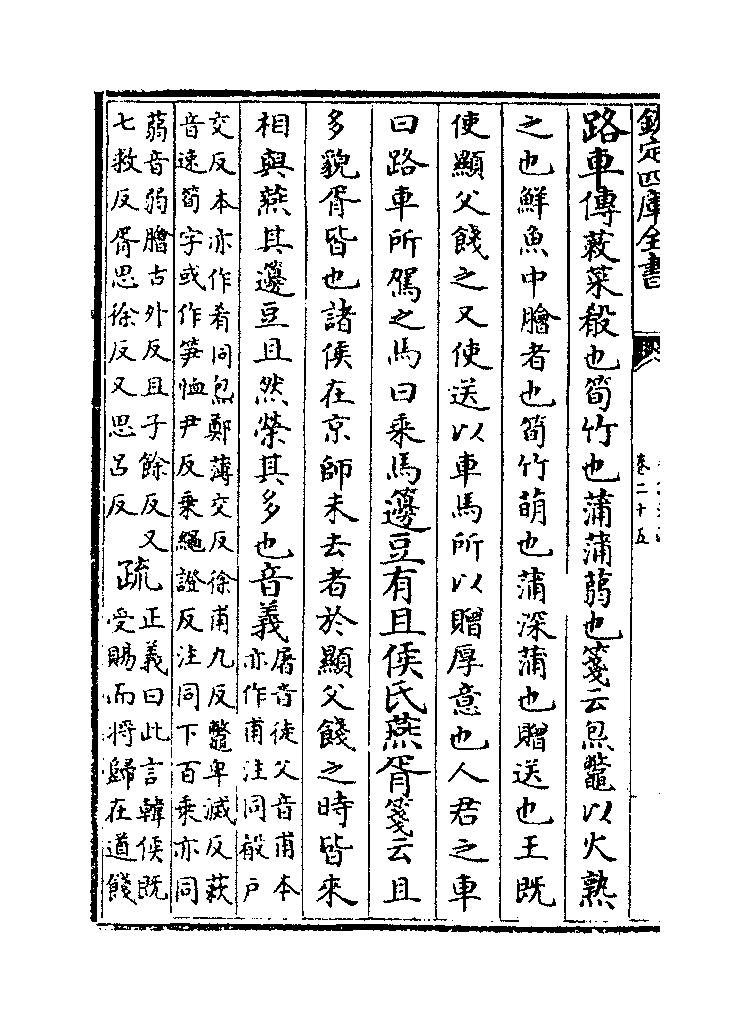 欽定四庫全書
卷二十五
路車傳蔌菜殽也筍竹也蒲蒲蒻也箋云炰鼈以火熟
之也鮮魚中膾者也筍竹萌也蒲深蒲也贈送也王既
使顯父餞之又使送以車馬所以贈厚意也人君之車
曰路車所駕之馬曰乘馬籩豆有且侯氏燕胥箋云且
多貌胥皆也諸侯在京師未去者於顯父餞之時皆來
相與燕其籩豆且然榮其多也音義
屠音徒父音甫本
亦作甫注同殽戶
交反本亦作肴同炰鄭薄交反徐甫九反鼈卑滅反蔌
音速筍字或作笋恤尹反乘繩證反注同下百乘亦同
蒻音弱膾古外反且子餘反又
七救反胥思徐反又思呂反
疏
正義曰此言韓侯既
受賜而將歸在道餞